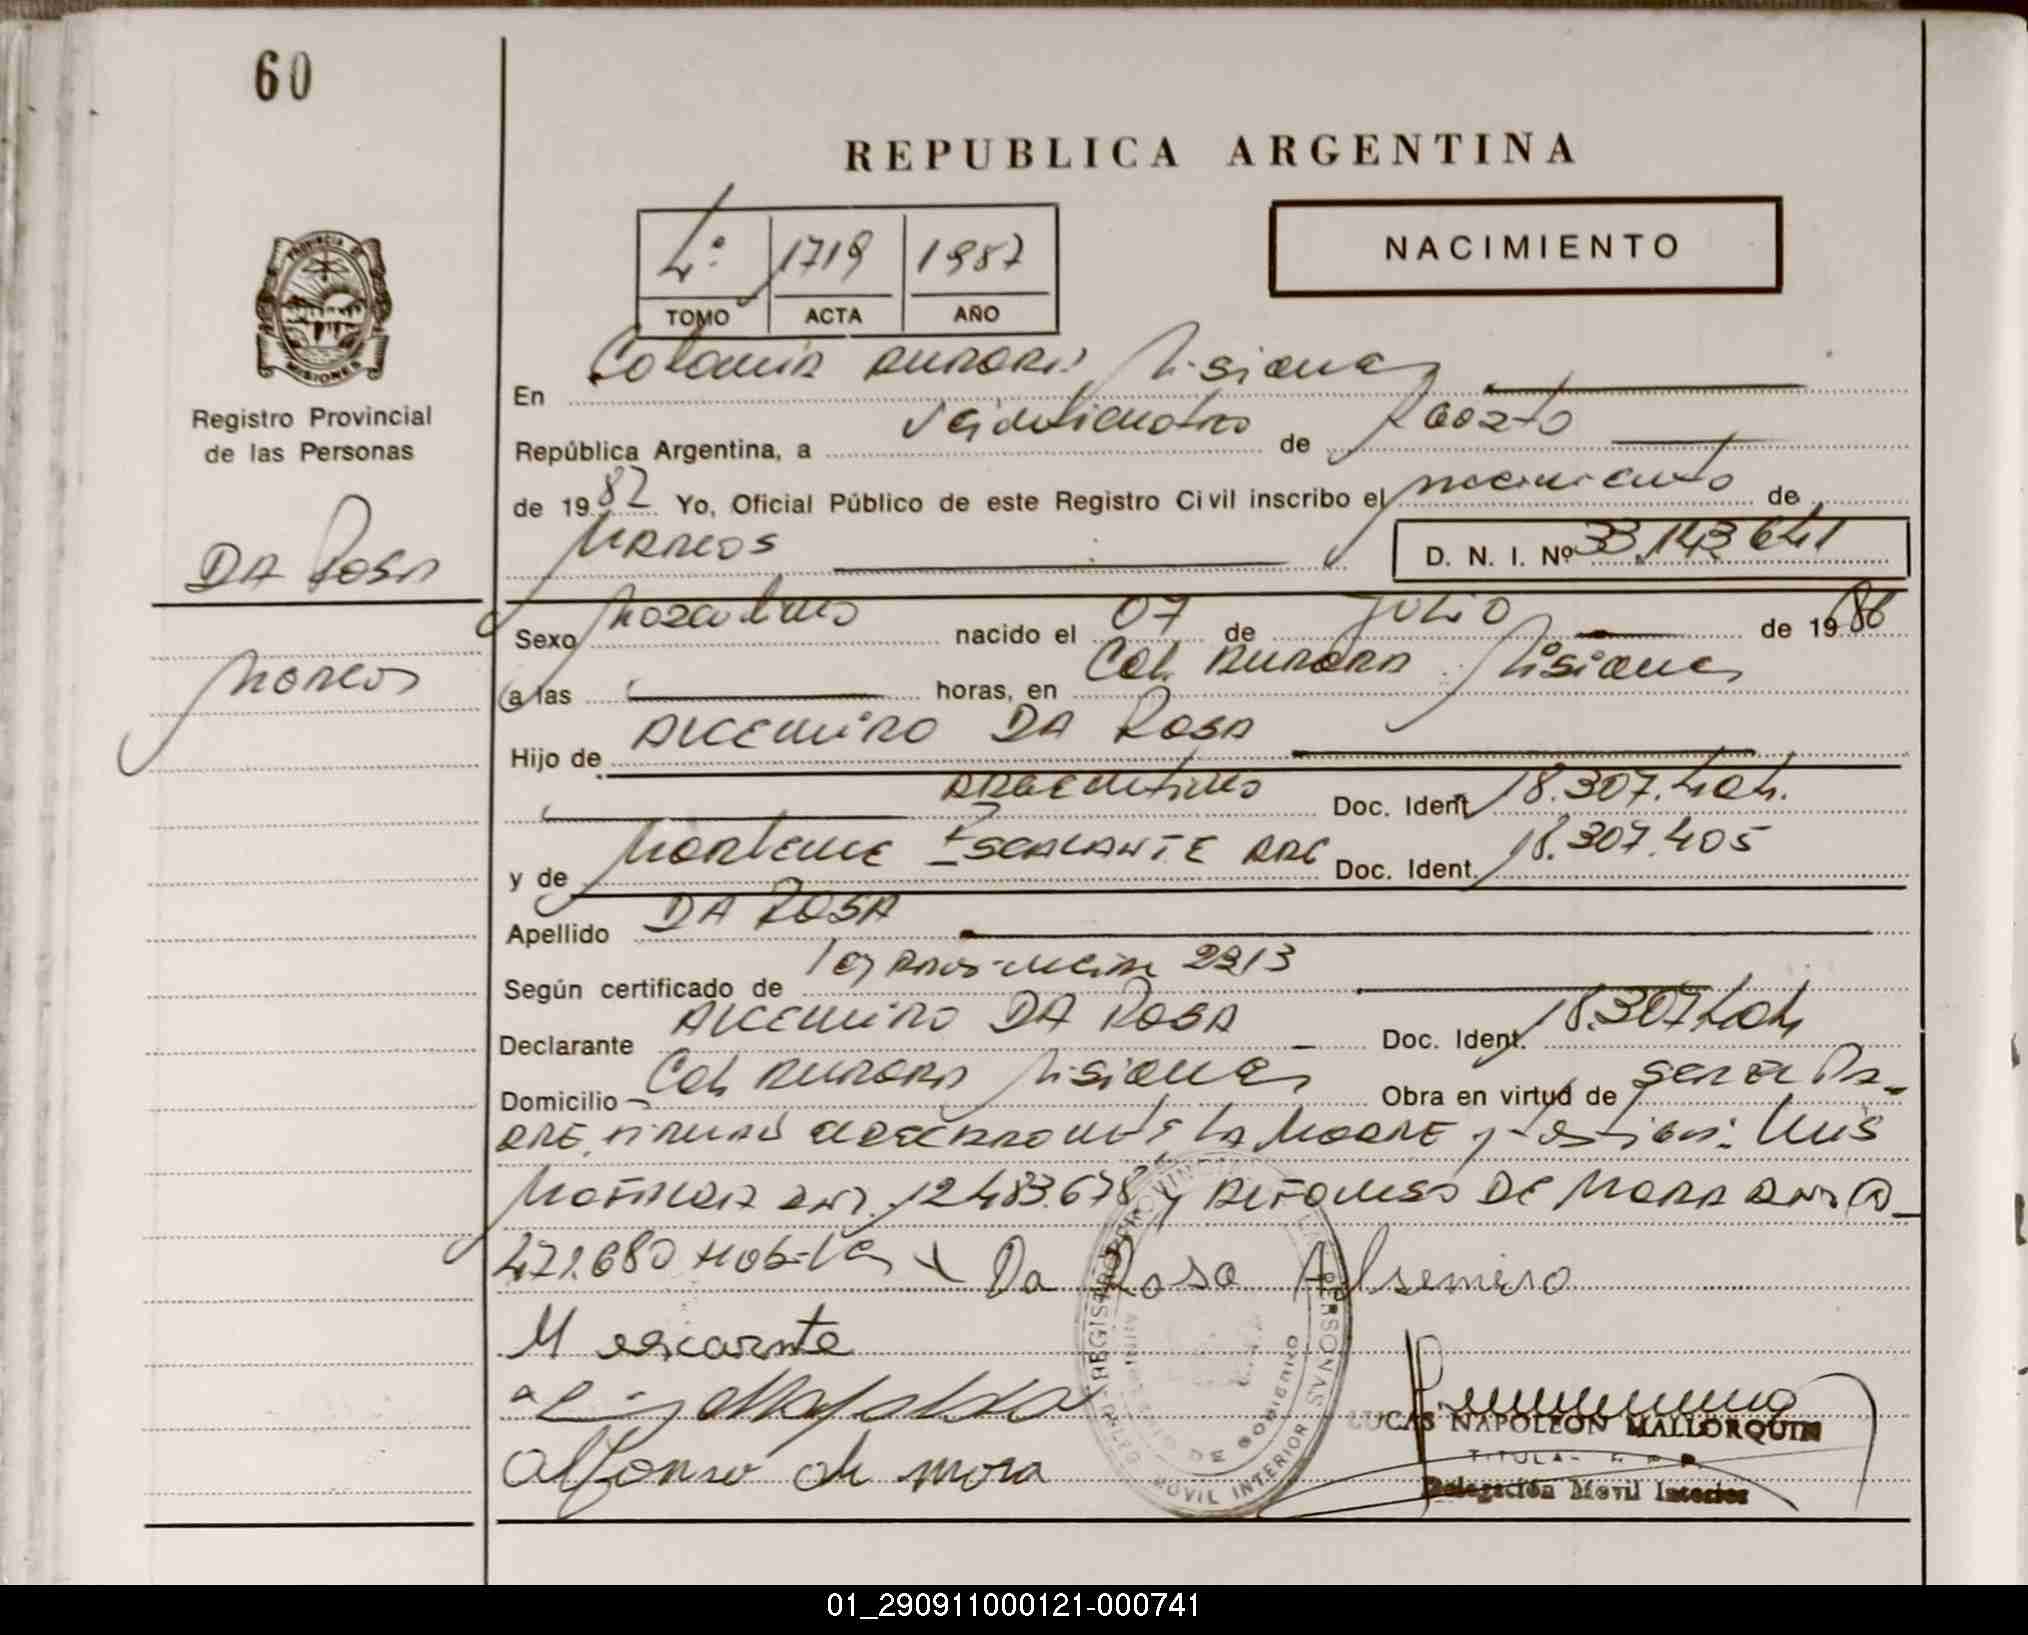 60
REPUBLICA ARGENTINA
4º 1719 1987
TOMO ACTA AÑO
NACIMIENTO
PROVINCIA DE MISIONES
Registro Provincial
de las Personas
DA ROSA
Marcos
En Colonia Aurora Misiones
República Argentina, a Veinticuatro de Agosto
de 1987 Yo, Oficial Público de este Registro Civil inscribo el nacimiento de
Marcos D. N. I. Nº 33.143.641
Sexo Masculino nacido el 07 de Julio de 1986
a las horas, en Col. Aurora Misiones
Hijo de ALCEMIRO DA ROSA
Argentino Doc. Ident. 18.307.404.
y de Marlene ESCALANTE ARG Doc. Ident. 18.307.405
Apellido DA ROSA
Según certificado de Ley Provincial 2213
Declarante ALCEMIRO DA ROSA Doc. Ident. 18.307.404
Domicilio Col Aurora Misiones Obra en virtud de ser el Pa-
dre, firman el declarante, la Madre y testigos: Luis
12.483.678 y Alfonso DE MORA
471.680 Da Rosa Alsemiro
M escalante
Alfonso de mora
REGISTRO PROVINCIAL DE LAS PERSONAS
MINISTERIO DE GOBIERNO
MOVIL INTERIOR
LUCAS NAPOLEON MALLORQUIN
TITULAR
Delegación Movil Interior
01_290911000121-000741